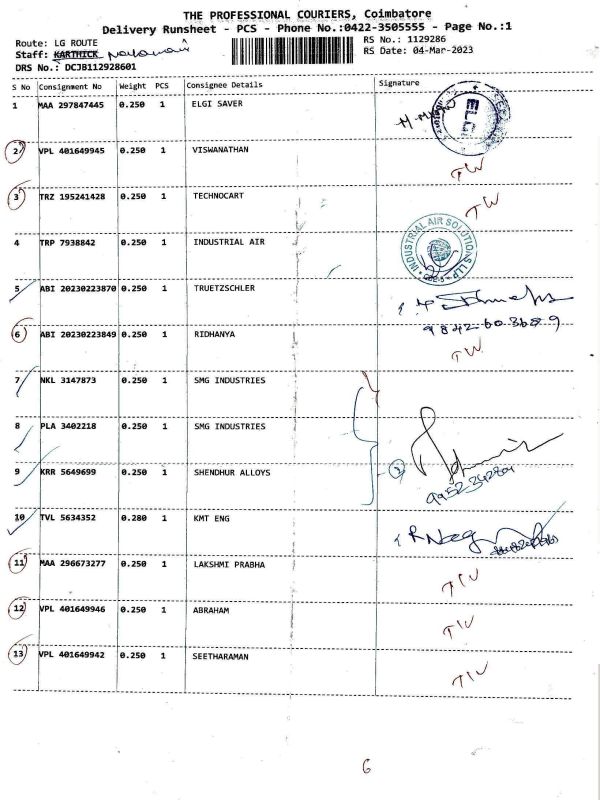 THE PROFESSIONAL COURIERS, Coimbatore
Delivery Runsheet - PCS - Phone No.:0422-3505555 - Page No.:1
Route: LG ROUTE
RS No.: 1129286
Staff: KARTHICK
RS Date: 04-Mar-2023
DRS No.: DCJB112928601
S No Consignment No Weight PCS Consignee Details Signature
1 MAA 297847445 0.250 1 ELGI SAVER
ELGI
2 VPL 401649945 0.250 1 VISWANATHAN
TW
3 TRZ 195241428 0.250 1 TECHNOCART
TW
4 TRP 7938842 0.250 1 INDUSTRIAL AIR
INDUSTRIAL AIR SOLUTIONS LLP
5 ABI 20230223870 0.250 1 TRUETZSCHLER
6 ABI 20230223849 0.250 1 RIDHANYA
TW
7 NKL 3147873 0.250 1 SMG INDUSTRIES
8 PLA 3402218 0.250 1 SMG INDUSTRIES
9 KRR 5649699 0.250 1 SHENDHUR ALLOYS
10 TVL 5634352 0.280 1 KMT ENG
11 MAA 296673277 0.250 1 LAKSHMI PRABHA
TW
12 VPL 401649946 0.250 1 ABRAHAM
TW
13 VPL 401649942 0.250 1 SEETHARAMAN
TW
6